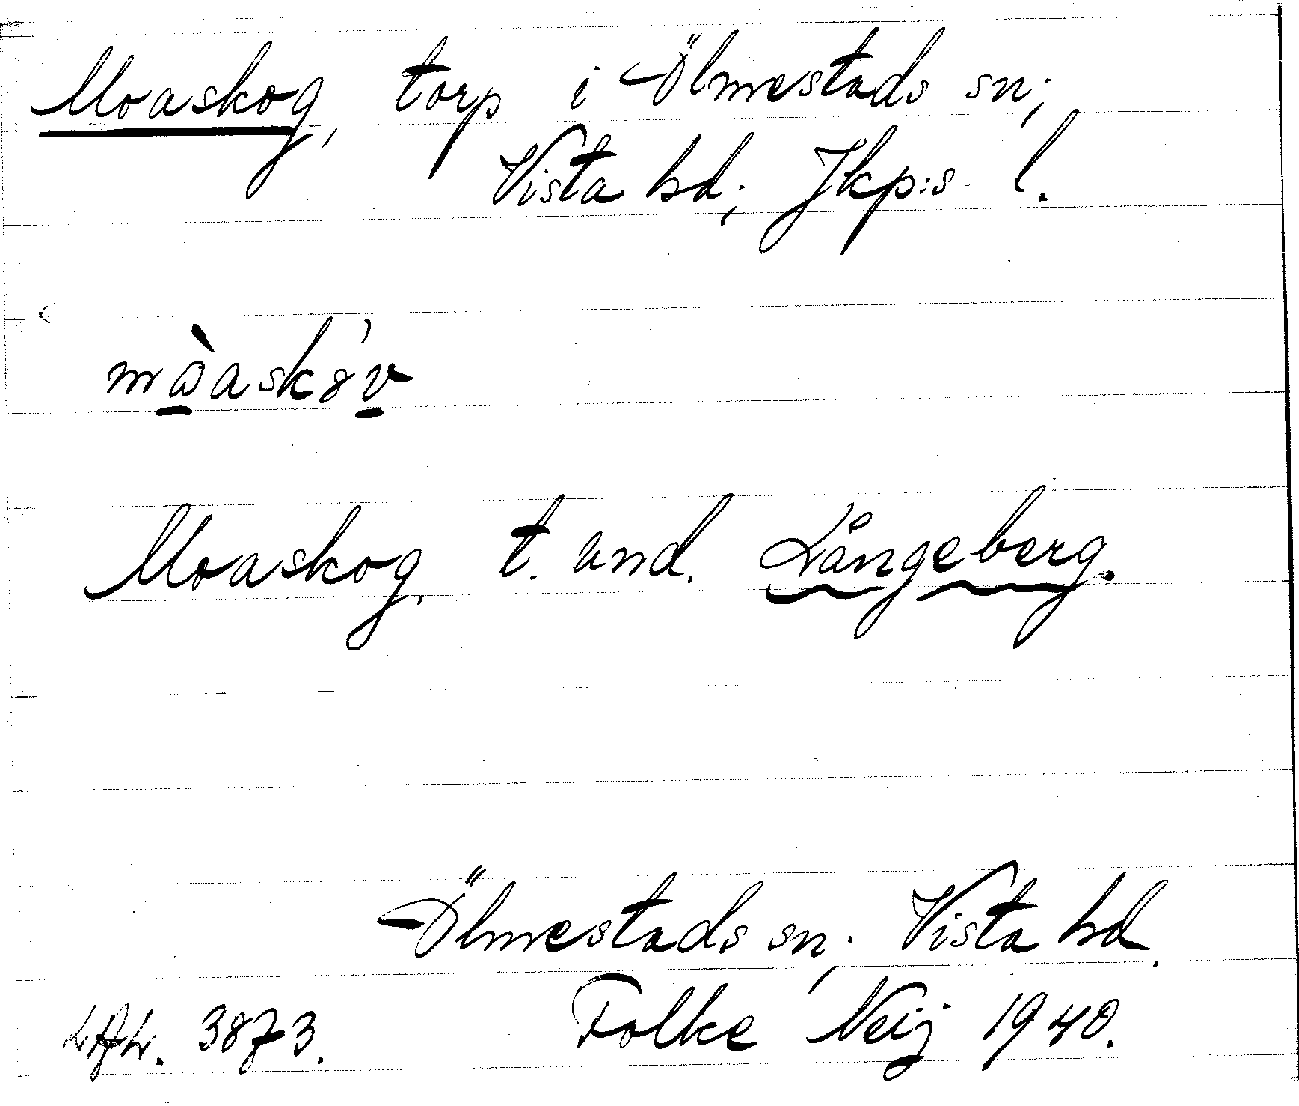 Moaskog, torp i Ölmestads sn;
Vista hd; Jkp:s l.
Moaskog, t. und. Långeberg.
Ölmestads sn; Vista hd.
LAL. 3873. Folke Neij 1940.